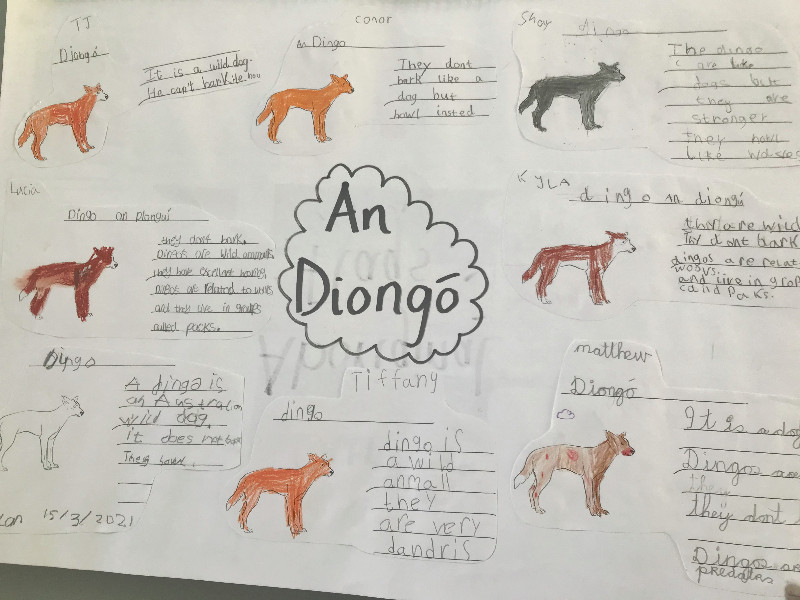 TJ
Diongó
It is a wild dog.
He can't bark
conor
An Dingo
They dont
bark like a
dog but
howl insted
Shay
dingo
The dingo
are like
dogs but
they are
stronger
they howl
like
Lucia
Dingo an
they dont bark.
Dingos are wild
they have excellent
Dingos are related to
and they live in groups
called packs.
An
Diongó
KYLA
dingo an diongó
they are wild
They dont bark
dingos are relat
and live in
Dingo
A dingo is
an Australian
wild dog.
it does not
They howl.
15/3/2021
Tiffany
dingo
dingo is
a wild
anmall
they
are very
dandris
matthew
Diongó
It is a dog
Dingos are
they
they dont
Dingos are
predators